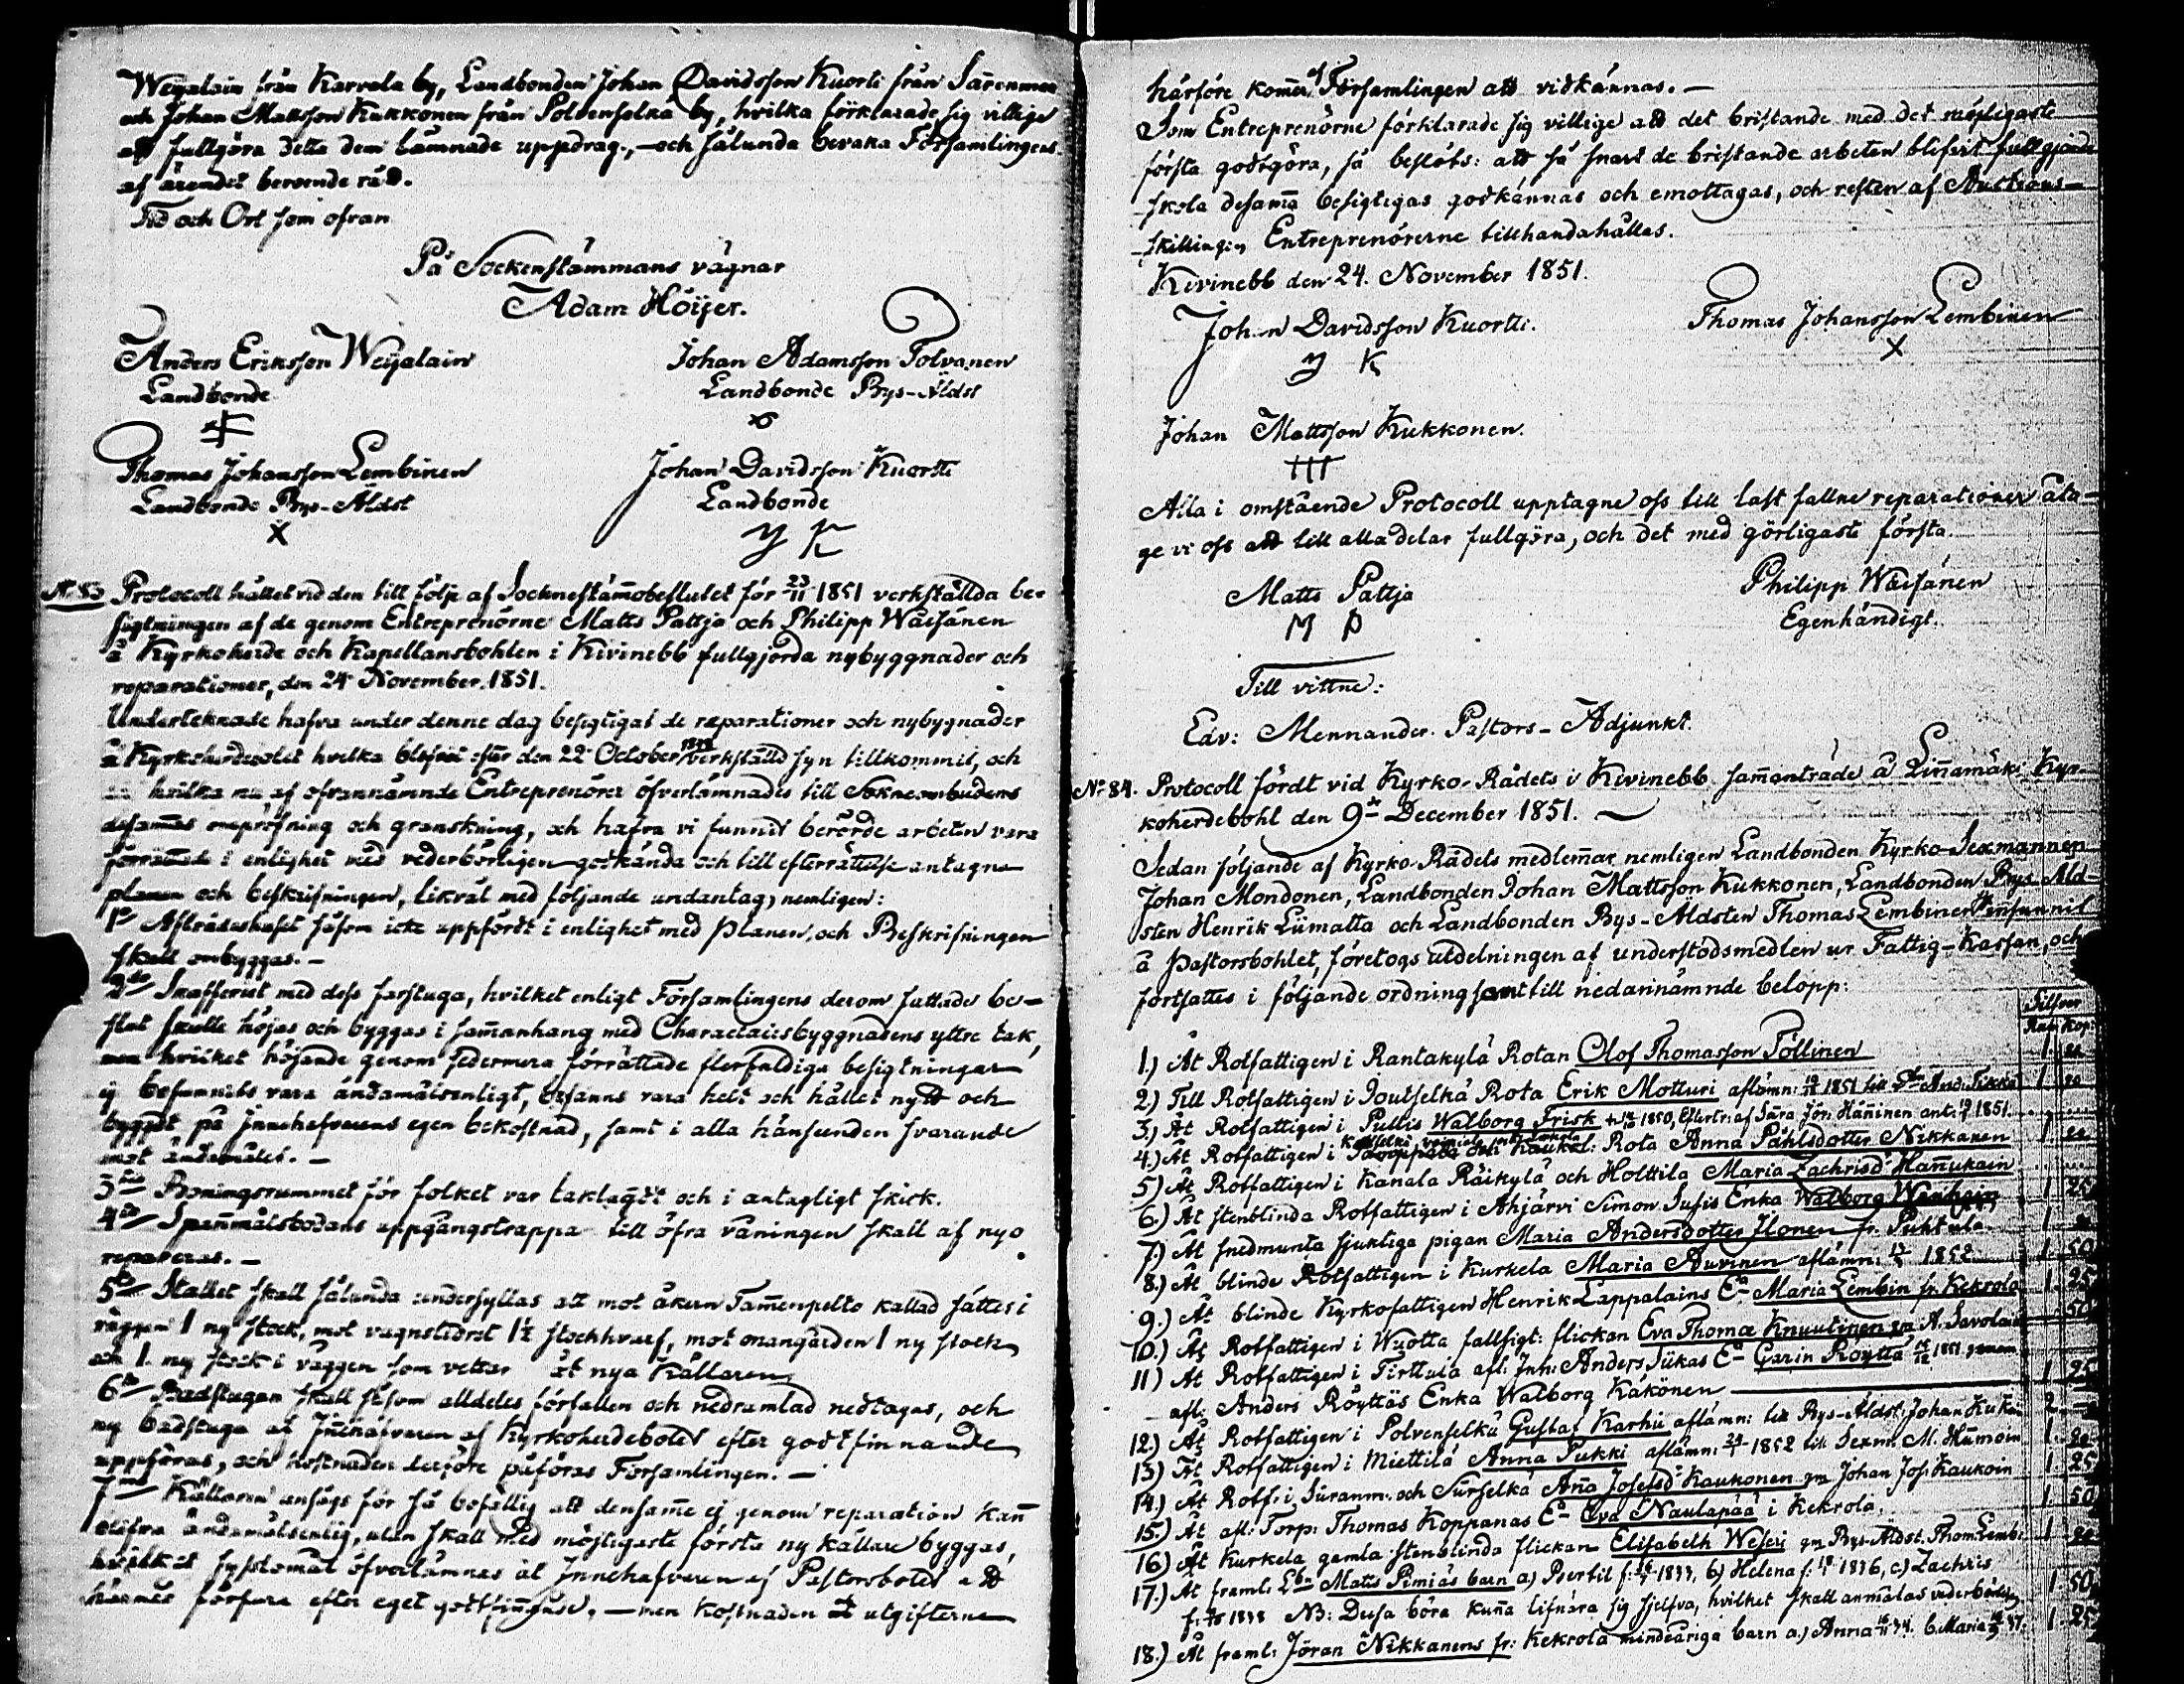 Weijalain från Karvala by, Landbonden Johan Davidsson Kuortti från
och Johan Mattsson Kukkonen från Polvenselkä by, hvilka förklarade sig villige
att fullgöra detta dem lämnade uppdrag, — och sålunda bevaka Församlingens
af ärendet beroende rätt.
Tid och Ort som ofvan
På Sockenstämmans vägnar
Adam Höijer.
Anders Eriksson Weijalain
Landbonde
Johan Adamsson Tolvanen
Landbonde Bys-Äldst
Thomas Johansson Lembinen
Landbonde Bys-Äldst
X
Johan Davidsson Kuortti
Landbonde
Y K
N:83 Protocoll hållet vid den till följe af Socknestämobeslutet för 23/11 1851 verkställda be-
sigtningen af de genom Entreprenörne Matts Pattja och Philipp Wäisänen
å Kyrkoherde och Kapellansbohlen i Kivinebb fullgjorda nybyggnader och
reparationer, den 24 November 1851.
Undertecknade hafva under denne dag besigtigat de reparationer och nybygnader
å Kyrkoherdebolet hvilka blifvit efter den 22 October 1848 verkställd syn tillkommit, och
hvilka nu af ofvannämnde Entreprenörer öfverlämnades till Sokneombudens
desammas ompröfning och granskning, och hafva vi funnit berörde arbeten vara
förrättade i enlighet med vederbörligen godkända och till efterrättelse antagna
planen och beskrifningen, likväl med följande undantag, nemligen:
1o Afträdeshuset såsom icke uppfördt i enlighet med planen, och Beskrifningen
skall ombyggas. —
2do Skafferiet med dess farstuga, hvilket enligt Församlingens derom fattade be-
slut skulle höjas och byggas i samanhang med Charactaiisbyggnadens yttre tak,
men hvilket höjande genom sedermera förrättade flerfaldiga besigtningar
ej befunnits vara ändamålsenligt, befanns vara helt och hållet nytt och
byggdt på Innehafvarens egen bekostnad, samt i alla hänseenden svarande
mot ändamålet. —
3tio Boningsrummet för folket var taklagdt och i antagligt skick.
4to Spanmålsbodans uppgångstrappa till öfra våningen skall af nyo
repareras. —
5to Stallet skall sålunda undersyllas att mot åkern Tammenpelto kallad sättes i
väggen 1 ny stock, mot vagnslidret 1½ stockhvarf, mot mangården 1 ny stock
och 1. ny stock i väggen som vettar åt nya Källaren.
6to Badstugan skall såsom alldeles förfallen och nedramlad nedtagas, och
ny badstuga af Innehafvaren af Kyrkoherdebolet efter godtfinnande
uppföras, och kostnaden derföre påföras Församlingen. —
7mo Källaren ansågs för så bofällig att densamme ej genom reparation kan
blifva ändamålsenlig, utan skall med möjligaste första ny källare byggas,
hvilket sysslomål öfverlämnas åt Innehafvaren af Pastorsbolet att
härmed förfara efter eget godtfinnande, — men kostnaden utgifterne
härföre kommer af Församlingen att vidkännas. —
Som Entreprenörne förklarade sig villige att det bristande med det möjligaste
första godtgöra, så beslöts: att så snart de bristande arbeten blifvit fullgjorde
skola desamma besigtigas godkännas och emottagas, och resten af Auktions-
skillingen Entreprenörerne tillhandahållas.
Kivinebb den 24. November 1851.
Johan Davidsson Kuortti.
Y K
Thomas Johansson Lembinen
X
Johan Mattsson Kukkonen.
Alla i omstående Protocoll upptagne oss till last fallne reparationer åta-
ge vi oss att till alla delar fullgöra, och det med görligaste första.
Matts Pattja
M P
Philipp Wäisänen
Egenhändigt.
Till vittne:
Edv: Mennander. Pastors-Adjunkt.
No 84. Protocoll fördt vid Kyrko-Rådets i Kivinebb sammanträde å Linnamäki Kyr-
koherdebohl den 9de December 1851. —
Sedan följande af Kyrko-Rådets medlemmar nemligen Landbonden Kyrko-Sexmannen
Johan Mondonen, Landbonden Johan Mattsson Kukkonen, Landbonden Bys Äld-
sten Henrik Liimatta och Landbonden Bys-Äldsten Thomas Lembinen
å Pastorsbohlet, företogs utdelningen af understödsmedlen ur Fattig-Kassan, och
fortsattes i följande ordning samt till nedannämnde belopp:
Silfver
Rub. Kop.
1.) Åt Rotfattigen i Rantakylä Rotan Olof Thomasson Töllinen 1.
2) Till Rotfattigen i Joutselkä Rota Erik Motturi aflämn: 1851 till Tikka 1
3.) Åt Rotfattigen i Pullis Walborg Frisk 1850, Eftertr: af Sara Jör: Häninen ant: 1851.
4.) Åt Rotfattigen i Rota Anna Påhlsdotter Nikkanen 1
5) Åt Rotfattigen i Kanala Räikylä och Holttila Maria Zachrisd: Hannukain
6.) Åt stenblinda Rotfattigen i Ahjärvi Simon Enka Walborg 1 25
7.) Åt snedmunta sjukliga pigan Maria Andersdotter Ilonen fr. Puhtula 1
8.) Åt blinde Rotfattigen i Kurkela Maria Auvinen aflämn: 1852 1 50
9.) Åt blinde Kyrkofattigen Henrik Lappalains Ea Maria Lembin fr. Kekrola 1 25
10.) Åt Rotfattigen i Wuotta fallsigt: flickan Eva Thomæ Knuutinen gm A. Savolain 50
11) Åt Rotfattigen i Tirttula afl: Inn: Anders Siikas Ea Carin Röyttä 1851 genom
afl: Anders Röyttäs Enka Walborg Käkönen 1 25
12.) Åt Rotfattigen i Polvenselkä Gustaf Karhu aflämn: till Bys-Äldst: Johan Kukkon 2
13) Åt Rotfattigen i Miettilä Anna Pukki aflämn: 1852 till Sexm: M. Hämöin 1
14.) Åt Rotf: i och Suurselkä Anna Josefsd: Kaukonen gm Johan Jos: Kaukoin 1 25
15.) Åt afl: Torp: Thomas Koppanas Ea Eva Naulapää i Kekrola. 1. 50
16) Åt Kurkela gamla stenblinda flickan Elisabeth Weseri gm Bys-Äldst. Thom Lemb: 1
17.) Åt framl: Matts Pimiäs barn a) Bertil f: 1833, b) Helena f: 1836, c) Zachris
f: 1838 NB: Dessa böra kunna lifnära sig sjelfva, hvilket skall anmälas vederbörlig 1. 50
18.) Åt framl: Jöran Nikkanens fr: Kekrola minderåriga barn a.) Anna b. Maria 1. 25